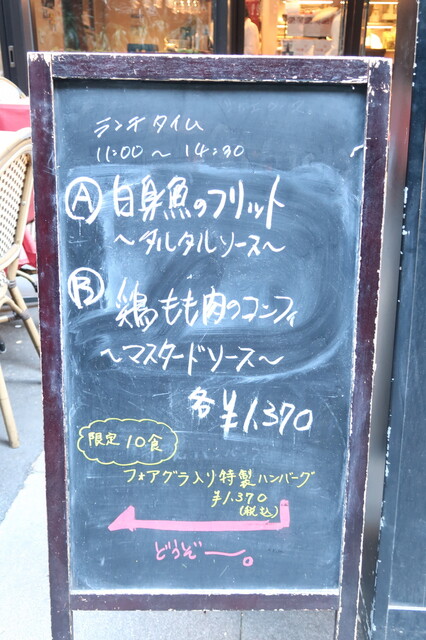 ランチタイム
11:00～14:30
Ⓐ白身魚のフリット
～タルタルソース～
Ⓑ鶏もも肉のコンフィ
～マスタードソース～
各¥1,370
限定10食
フォアグラ入り特製ハンバーグ
¥1,370
(税込)
どうぞー。